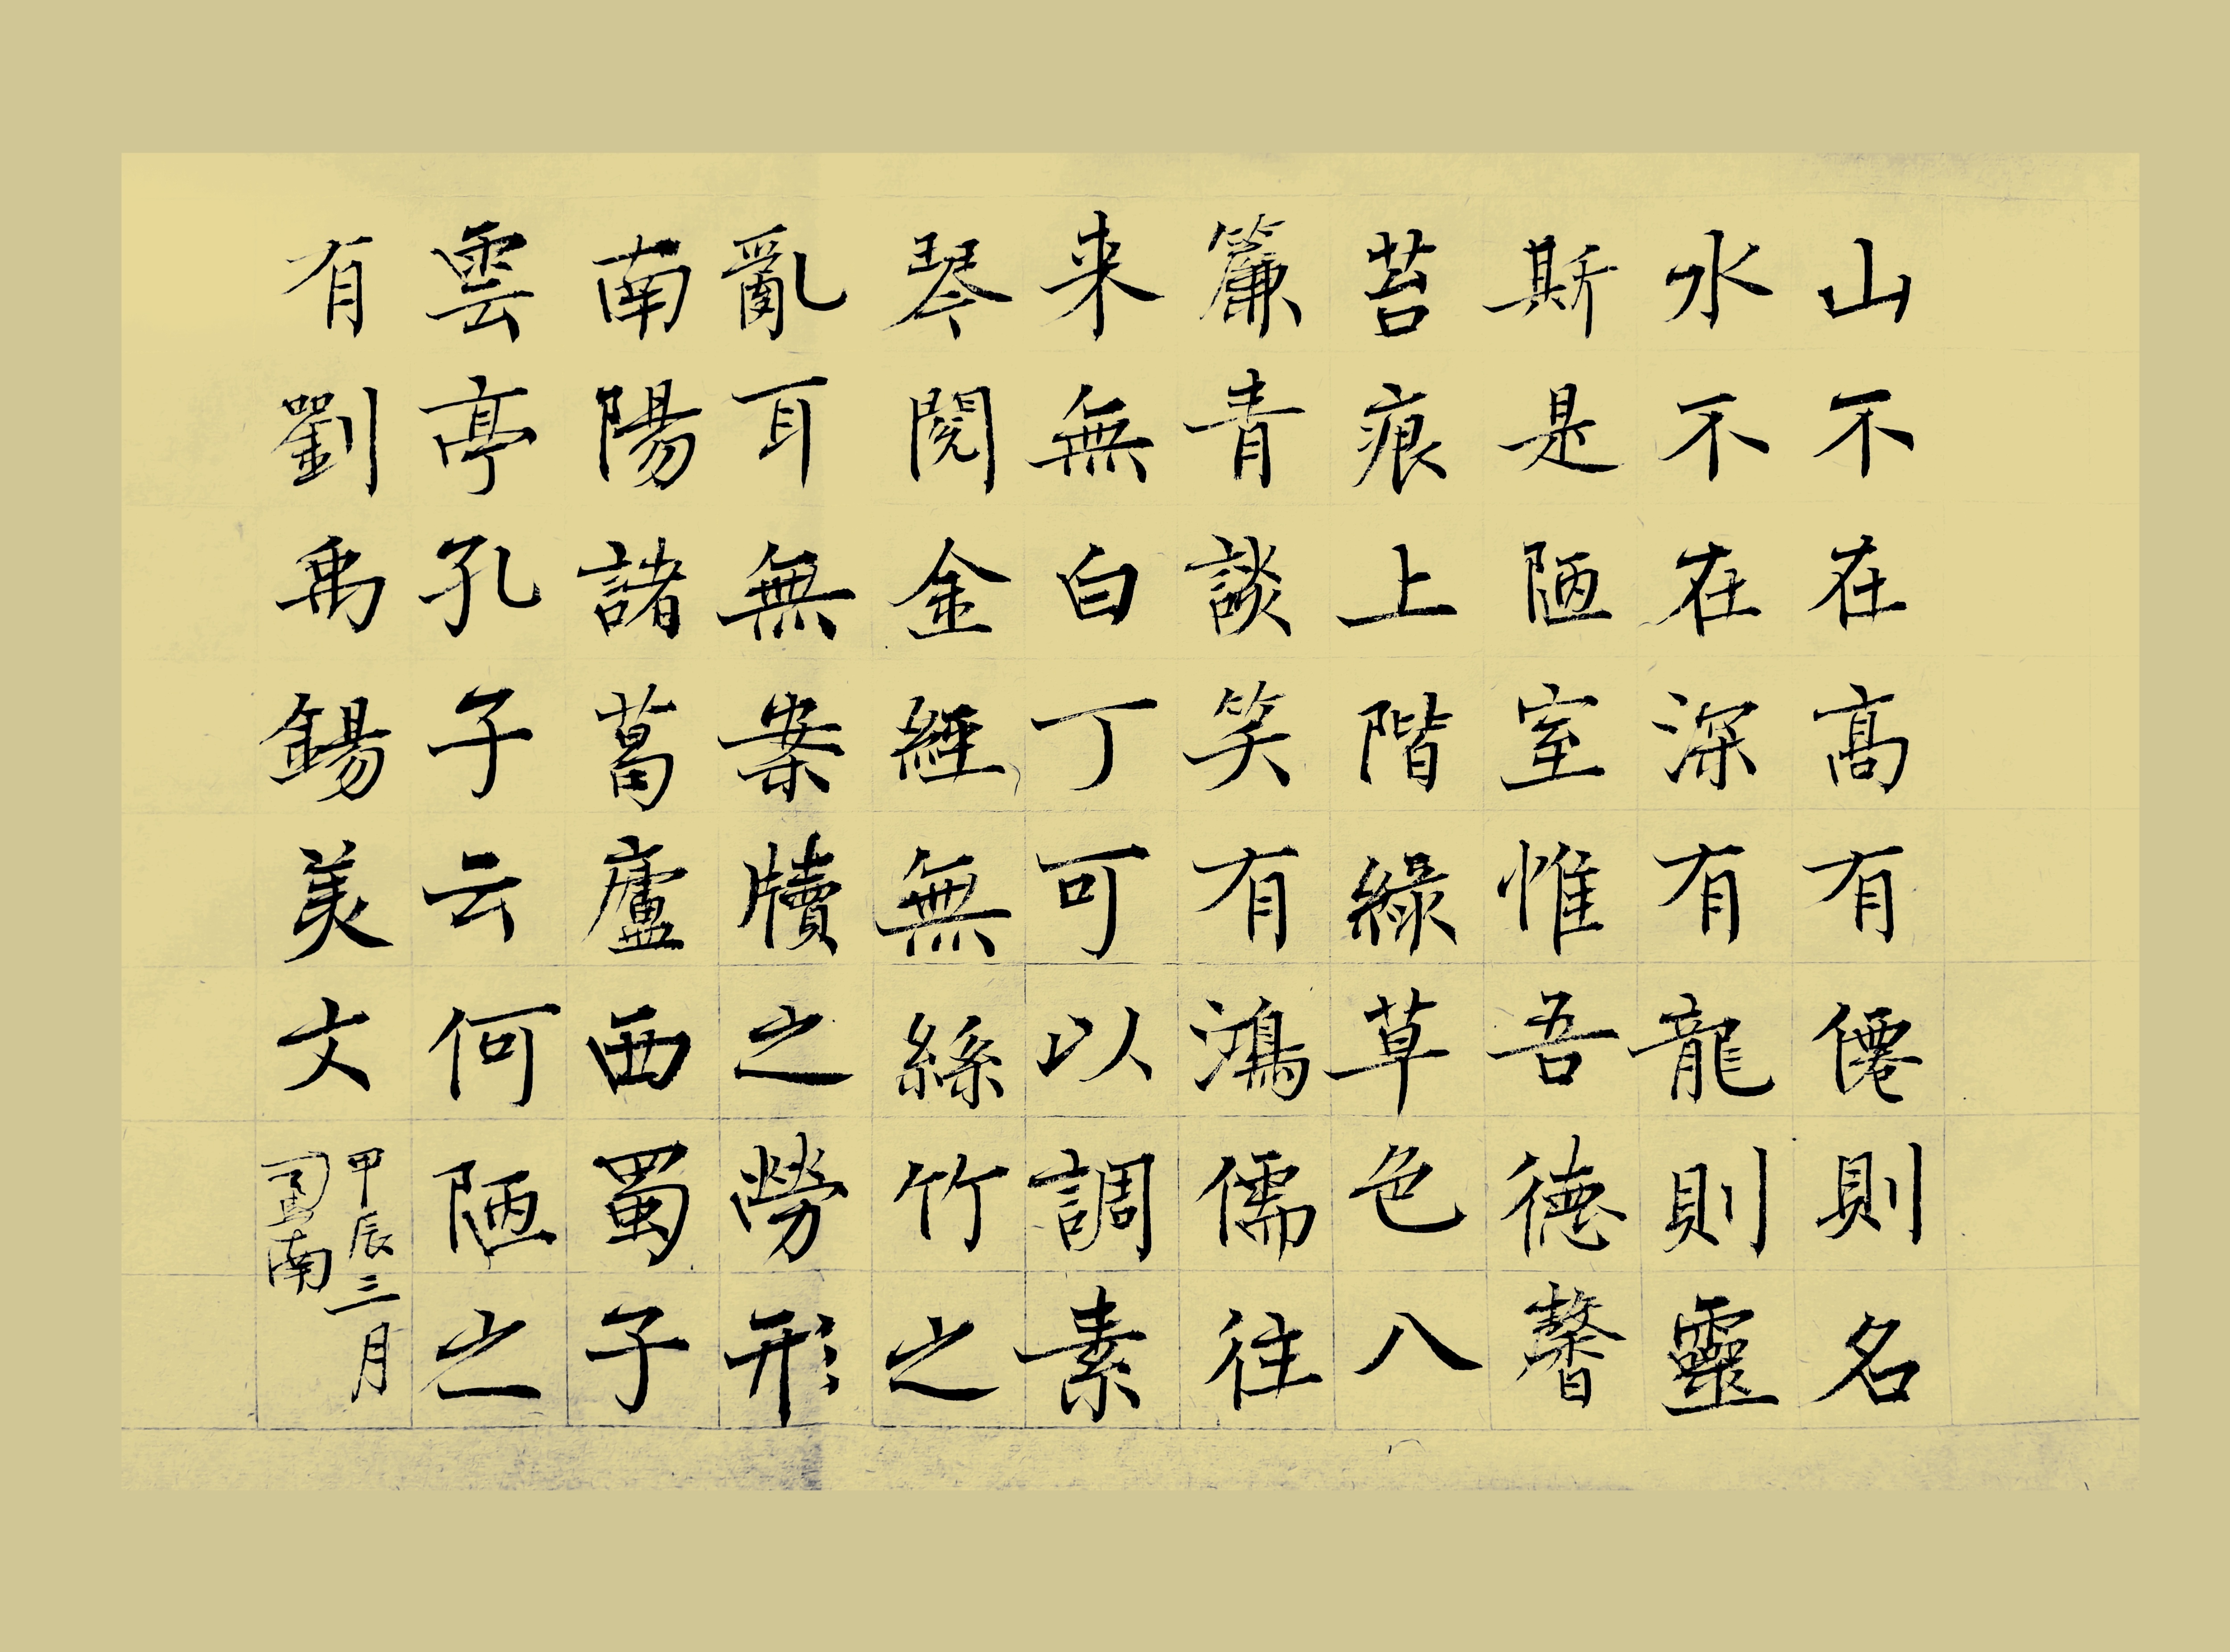 山不在高有僊則名
水不在深有龍則靈
斯是陋室惟吾德馨
苔痕上階綠草色八
簾青談笑有鴻儒往
来無白丁可以調素
琴閱金經無絲竹之
亂耳無案牘之勞形
南陽諸葛廬西蜀子
雲亭孔子云何陋之
有劉禹錫美文
甲辰三月
南